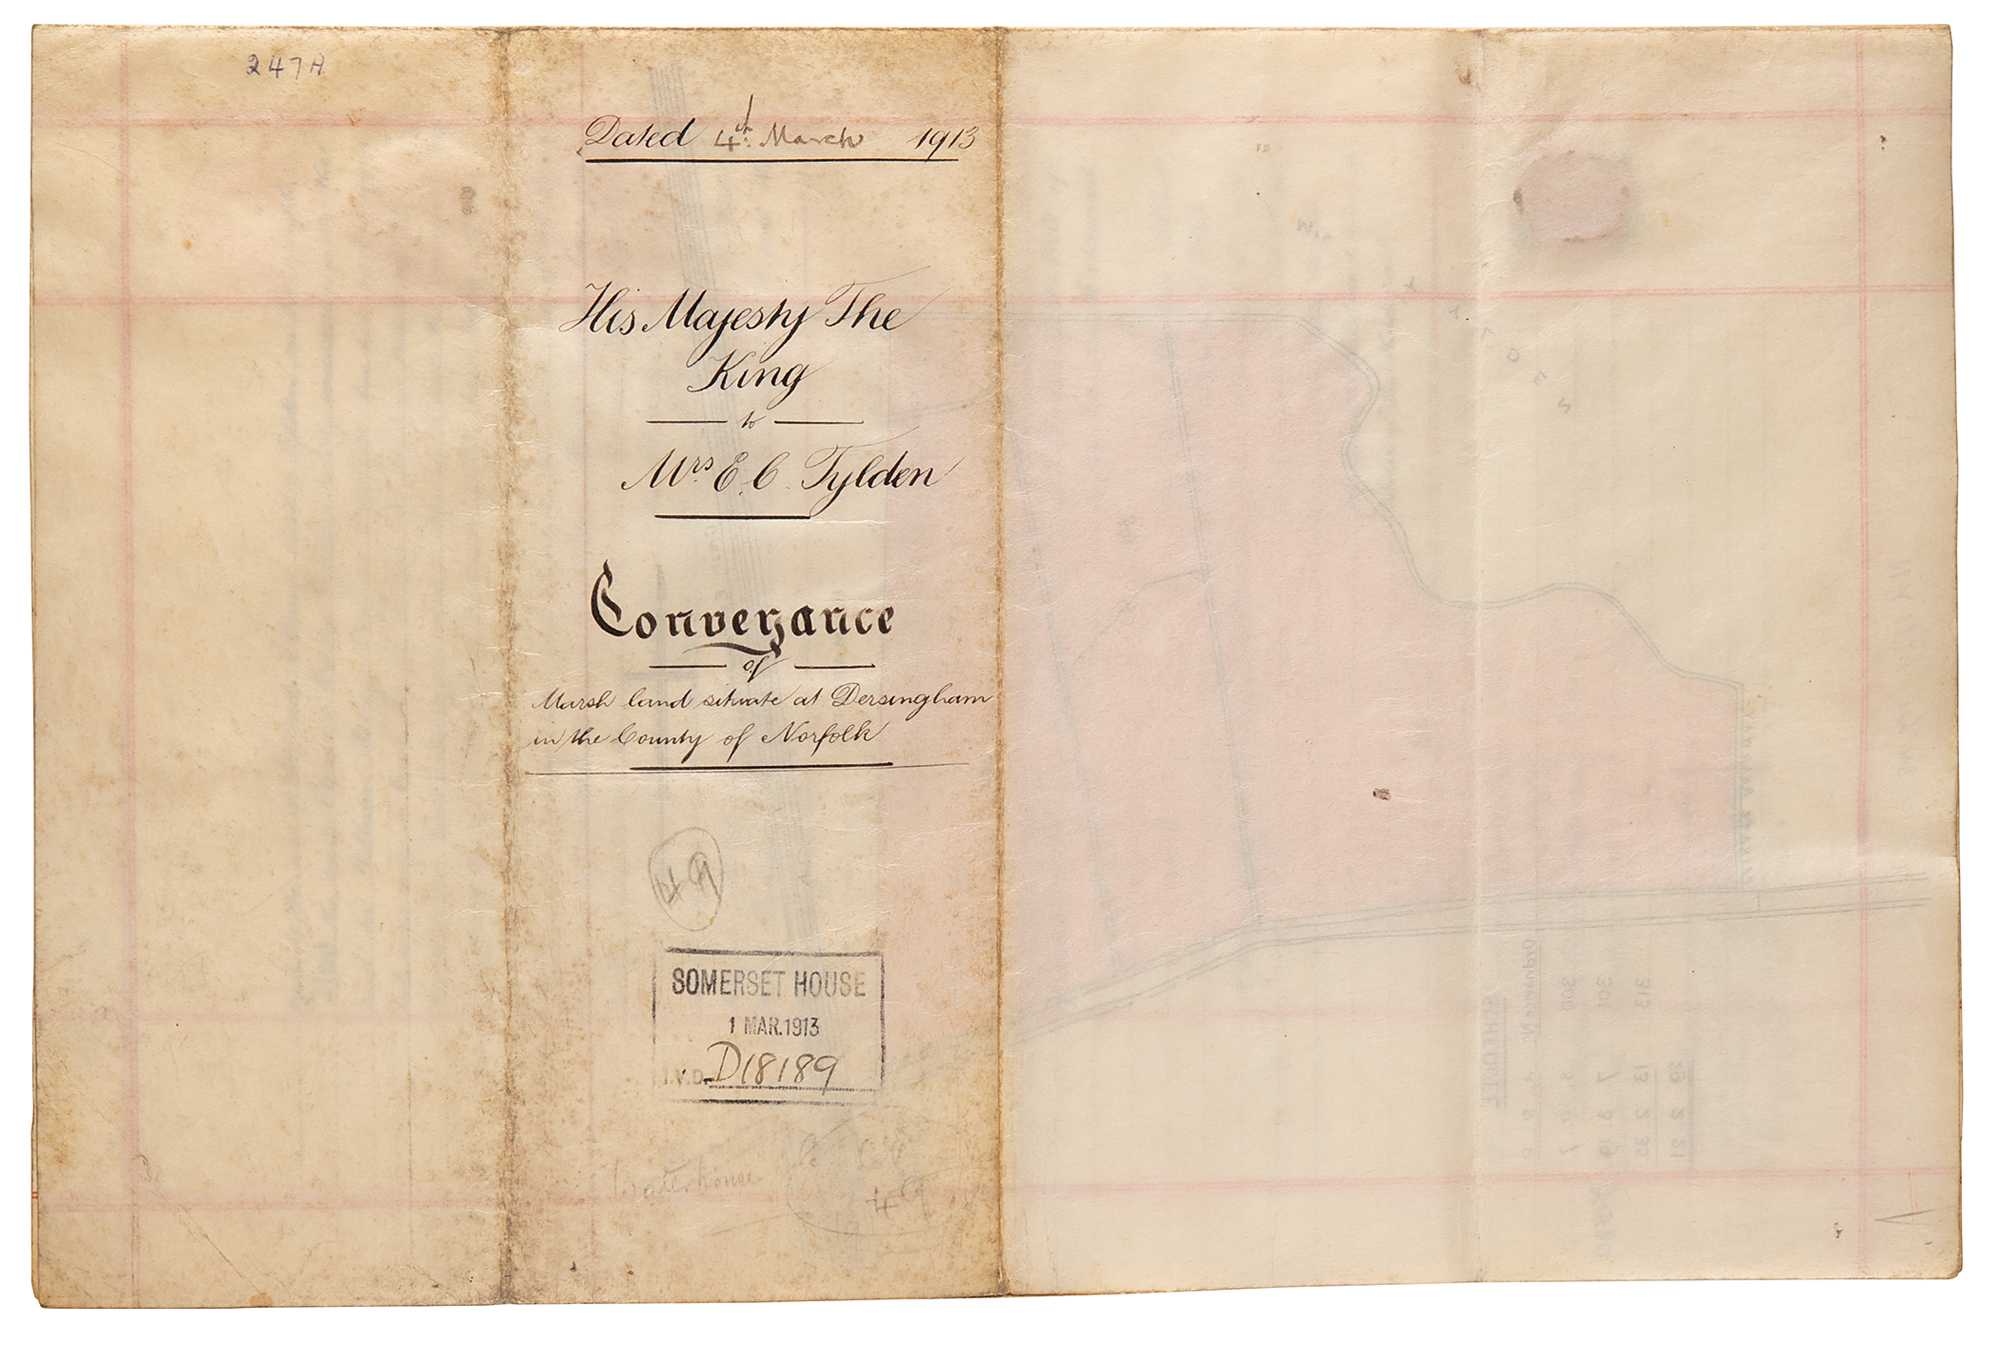 247A
Dated 4th March 1913
His Majesty The
King
to
Mrs E. C. Tylden
Conveyance
of
Marsh land situate at Dersingham
in the County of Norfolk
49
SOMERSET HOUSE
1 MAR. 1913
I.V.D. D18189
Waterhouse
49